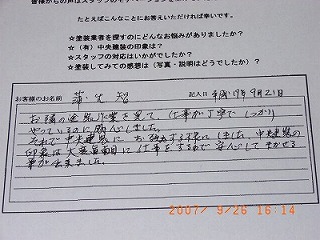 皆様からの声はスタッフのモチベーション
たとえばこんなことにお答えいただければ幸いです。
★塗装業者を探すのにどんなお悩みがありましたか?
★(有)中央建装の印象は?
★スタッフの対応はいかがでしたか?
★塗装してみての感想は(写真・説明はどうでしたか?)
お客様のお名前 蒲生 智 記入日 平成19年9月21日
お隣の塗装作業を見て、仕事が丁寧でしっかり
やっているのに感心しました。
それで中央建装にお願いする事にしました。中央建装の
印象は大変真面目に仕事をするので安心してまかせる
事が出来ました。
2007/ 9/26 16:14